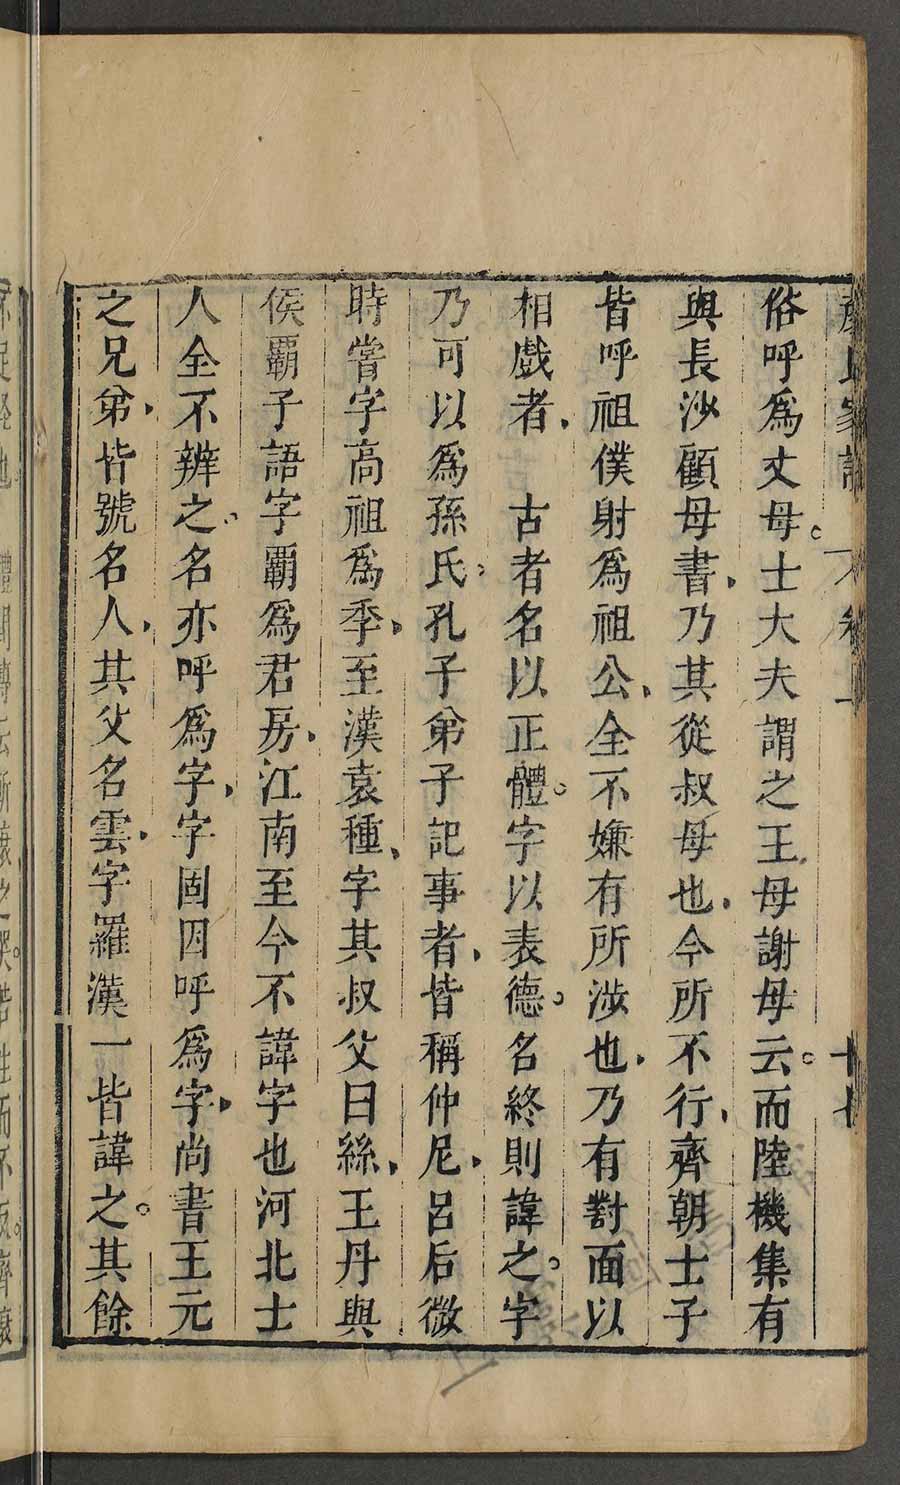 顏氏家訓 卷上 十七
俗呼爲丈母。士大夫謂之王母謝母云。而陸機集有
與長沙顧母書、乃其從叔母也、今所不行、齊朝士子
皆呼祖僕射爲祖公、全不嫌有所涉也、乃有對面以
相戲者、 古者名以正體。字以表德。名終則諱之。字
乃可以爲孫氏、孔子弟子記事者、皆稱仲尼、呂后微
時嘗字高祖爲季、至漢袁種、字其叔父曰絲、王丹與
侯霸子語字霸爲君房、江南至今不諱字也河北士
人全不辨之、名亦呼爲字、字固因呼爲字、尚書王元
之兄弟、皆號名人、其父名雲、字羅漢一皆諱之。其餘